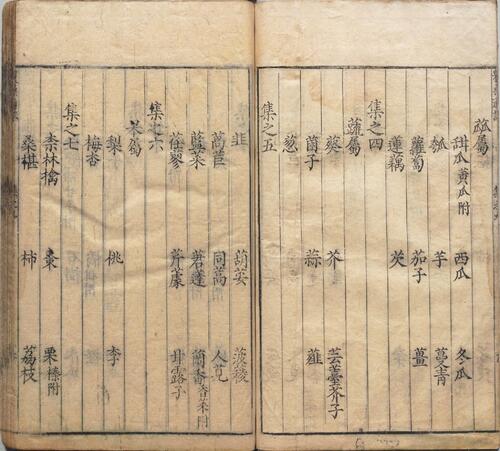 蓏屬
甜瓜黄瓜附 西瓜 冬瓜
瓠 芋 蔓青
蘿蔔 茄子 薑
蓮藕 芡
集之四
蔬屬
葵 芥 芸薹芥子
菌子 蒜 薤
葱
集之五
韭 葫荽 菠薐
萵苣 同蒿 人莧
藍菜 莙薘 蘭香香菜附
荏蓼 芹 甘露子
集之六
菓屬
梨 桃 李
梅杏
集之七
柰林檎 棗 栗榛附
桑椹 柿 荔枝